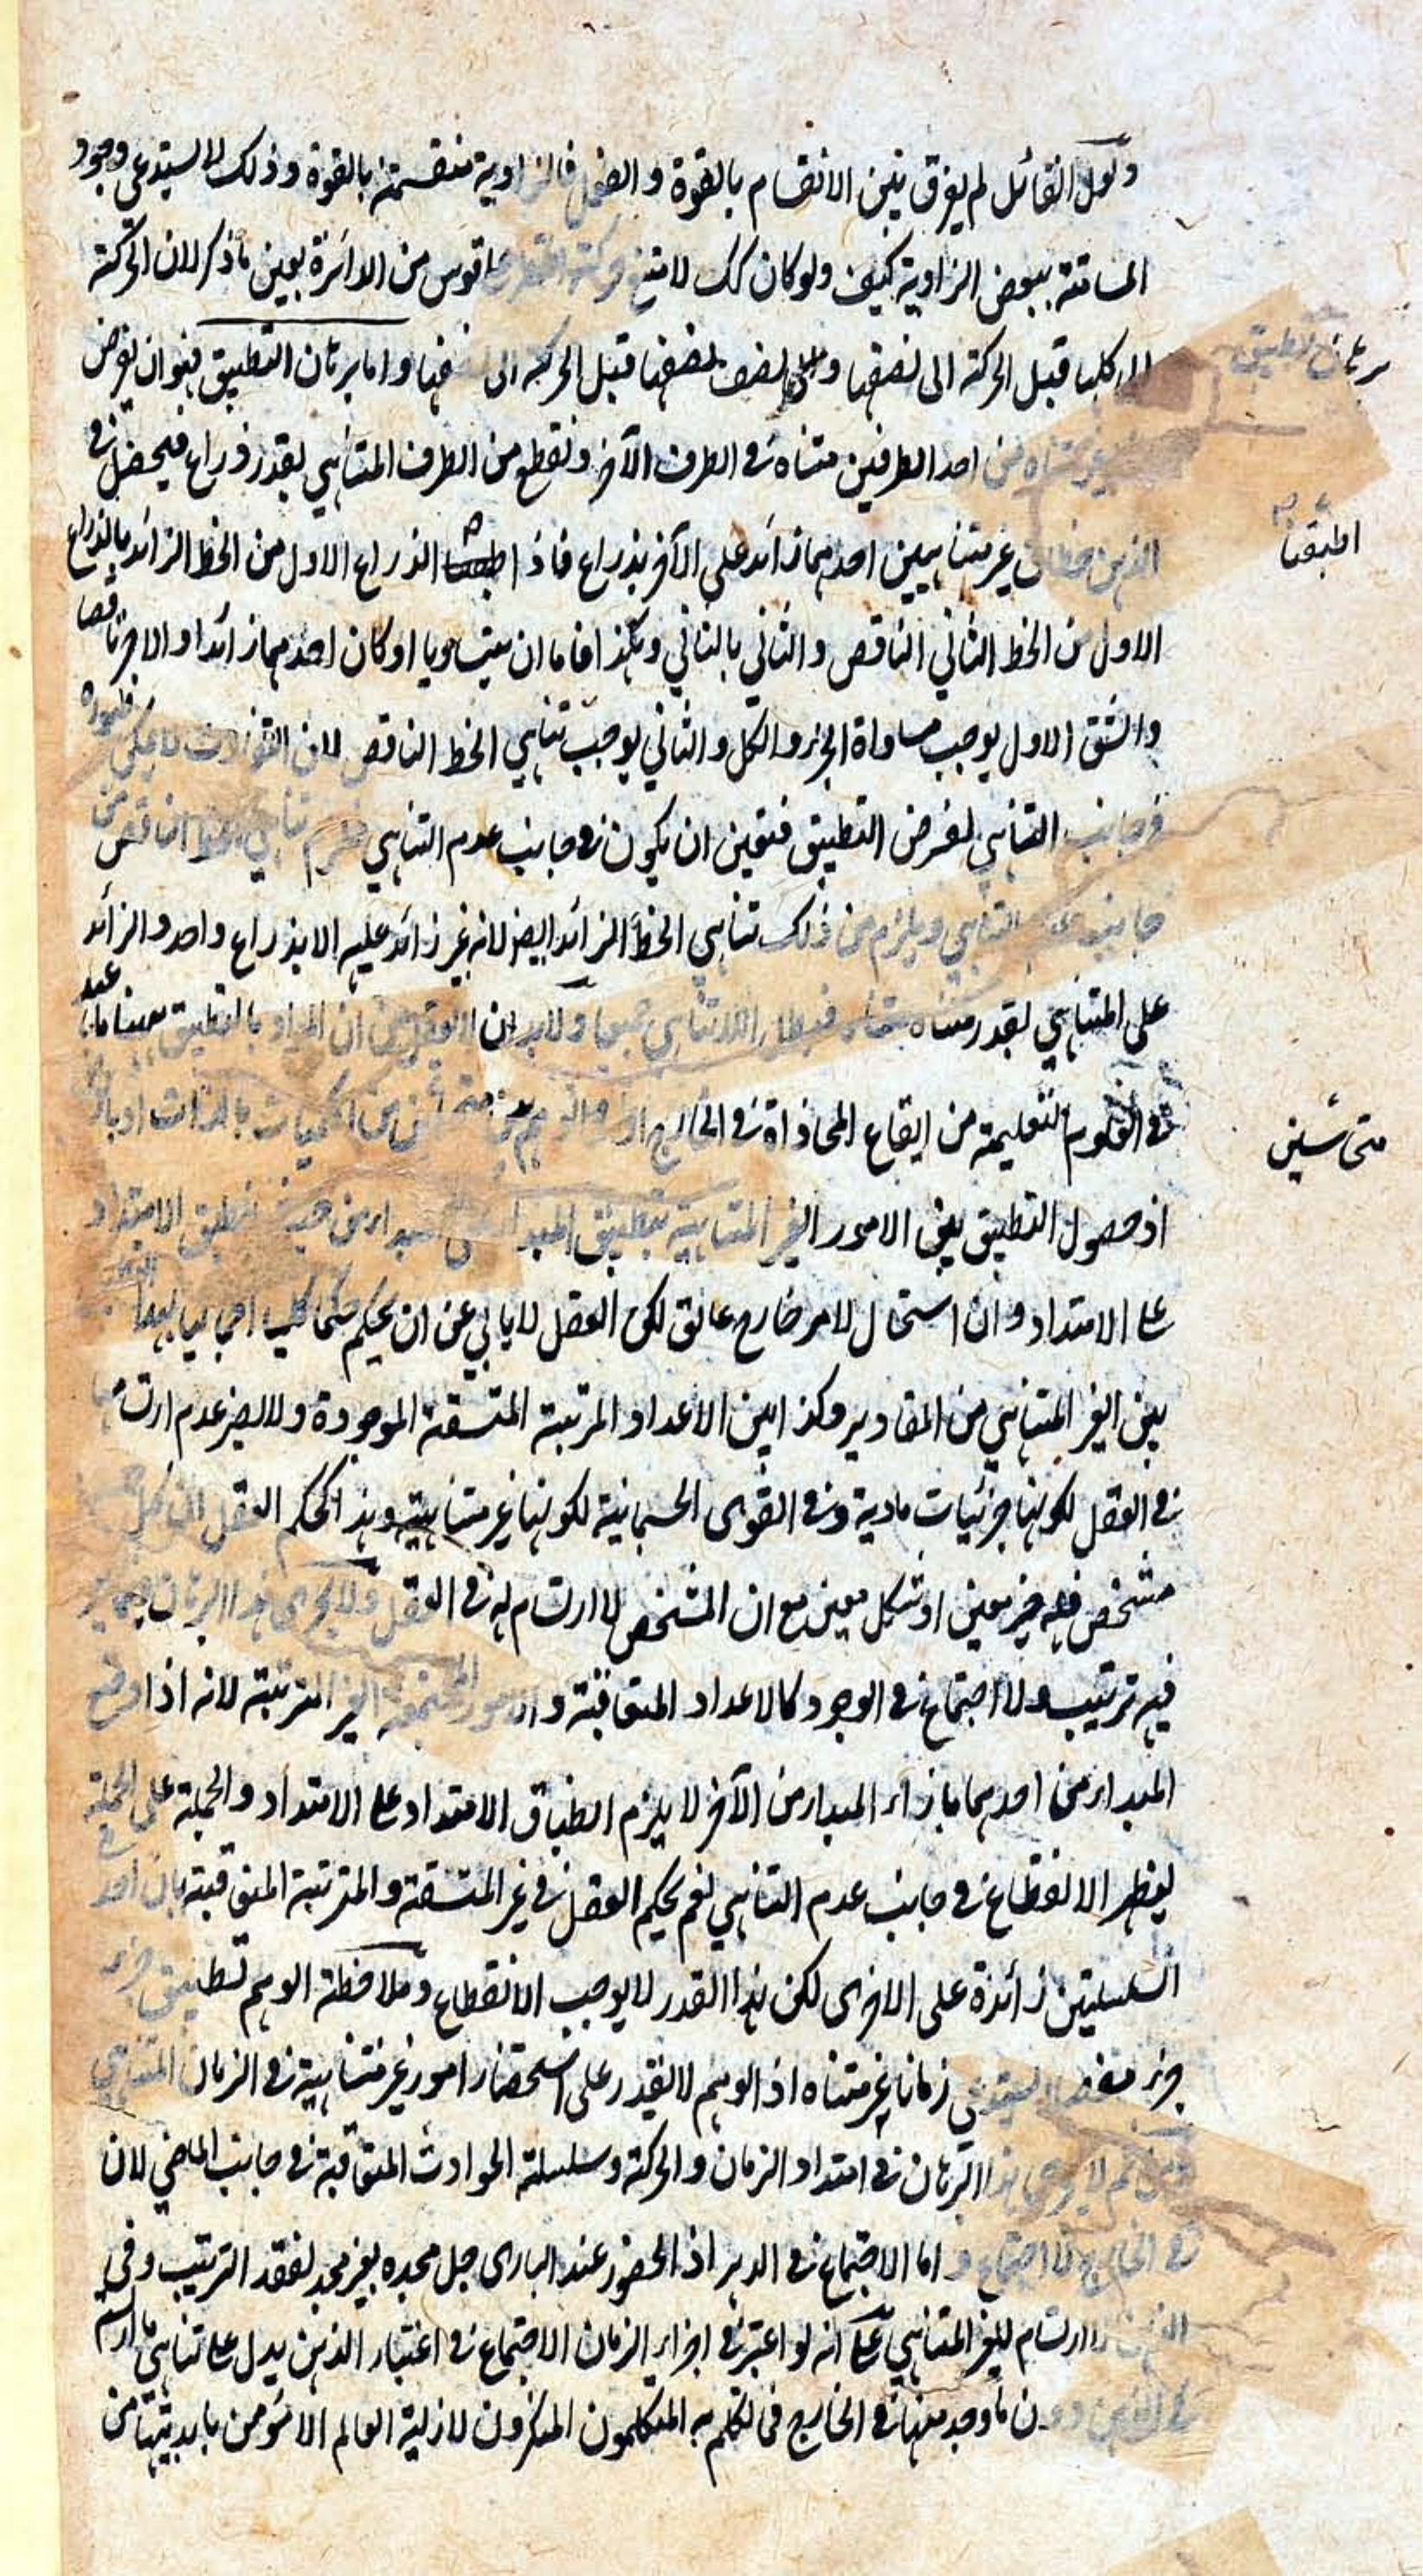 ولعل القائل لم يفرق بين الانقسام بالقوة و الفعل فالزاوية منقسمة بالقوة و ذلك لا يستدعى وجود
المسامتة ببعض الزاوية كيف ولو كان كك لامتنع حركة على قوس من الدائرة بعين ما ذكر لان الحركة
كلها قبل الحركة الى نصفها و الى نصف نصفها قبل الحركة الى نصفها و اما برهان التطبيق فهو ان يفرض
برهان تطبيق
غير متناه من احد الطرفين متناه فى الطرف الآخر و نقطع من الطرف المتناهي بقدر ذراع فيحصل فى
الذهن خطان غير متناهيين احدهما زائد على الآخر بذراع فاذا الذراع الاول من الخط الزائد بالذراع
اطبقنا
الاول من الخط الثاني الناقص و الثاني بالثاني و هكذا فاما ان يتساويا او كان احدهما زائدا و الاخر ناقصا
و الشق الاول يوجب مساواة الجزء و الكل و الثاني يوجب تناهي الخط الناقص لان التفاوت لا يمكن ظهوره
فى جانب التناهي لفرض التطبيق فتعين ان يكون فى جانب عدم التناهي فلزم تناهي الخط الناقص من
جانب عدم التناهي و يلزم من ذلك تناهي الخط الزائد ايضا لانه غير زائد عليه الا بذراع واحد و الزائد
على المتناهي بقدر متناه متناه فبطل اللاتناهي و لا بد ان ان المراد بالتطبيق ههنا ما
فى العلوم التعليمية من ايقاع المحاذاة فى الخارج او فى الوهم من الكميات بالذات او
متحاشين
اذ حصول التطبيق بين الامور الغير المتناهية بتطبيق المبدأ على مبدأ من حيث تطبيق الامتداد
على الامتداد و ان استحال لامر خارج عائق لكن العقل لا يابى عن ان يحكم حكما كليا اجماليا بهذا التطبيق
بين الغير المتناهي من المقادير و كذا بين الاعداد المرتبة المتسقة الموجودة و لا يضر عدم ارتسامها
فى العقل لكونها جزئيات مادية و فى القوى الجسمانية لكونها غير متناهية و هذا كحكم العقل ان كل
متشخص فله حيز معين او شكل معين مع ان المشخص لا ارتسام له فى العقل و لا يجرى هذا البرهان فيما
فيه ترتيب و لا اجتماع فى الوجود كالاعداد المتعاقبة و الامور المجتمعة الغير المترتبة لانه اذا وقع
المبدأ من احدهما بازاء المبدأ من الآخر لا يلزم انطباق الامتداد على الامتداد و الجملة على الجملة
ليظهر الانقطاع فى جانب عدم التناهي نعم يحكم العقل فى غير المتسقة و المترتبة المتعاقبة بان احد
السلسلتين زائدة على الاخرى لكن هذا القدر لا يوجب الانقطاع و ملاحظة الوهم تطبيق جزء
جزء مفصلا يستدعى زمانا غير متناه اذ الوهم لا يقدر على استحضار امور غير متناهية فى الزمان المتناهي
ثم لا يجرى هذا البرهان فى امتداد الزمان و الحركة و سلسلة الحوادث المتعاقبة فى جانب الماضي لان
فى الخارج لا اجتماع و اما الاجتماع فى الدهر اذ الحضور عند البارى جل مجده بغير مجد لفقد الترتيب و فى
الذهن لا ارتسام للغير المتناهي على انه لو اعتبر فى اجزاء الزمان الاجتماع فى اعتبار الذهن يدل على تناهي ما ارتسم
فى الذهن دون ما وجد منها فى الخارج فما تكلم به المتكلمون المنكرون لازلية العالم الامنون بابديتها من